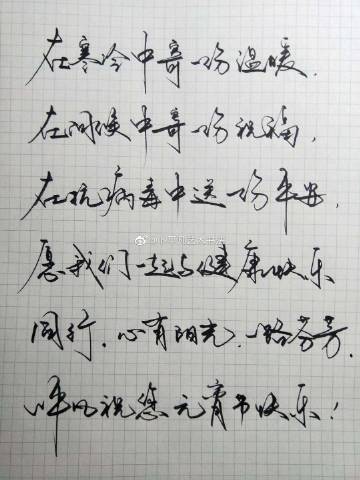 在寒冷中寄一份温暖，
在问候中寄一份祝福，
在抗病毒中送一份平安，
愿我们一起与健康快乐
同行，心有阳光，一路芬芳，
平凡祝您元宵节快乐！